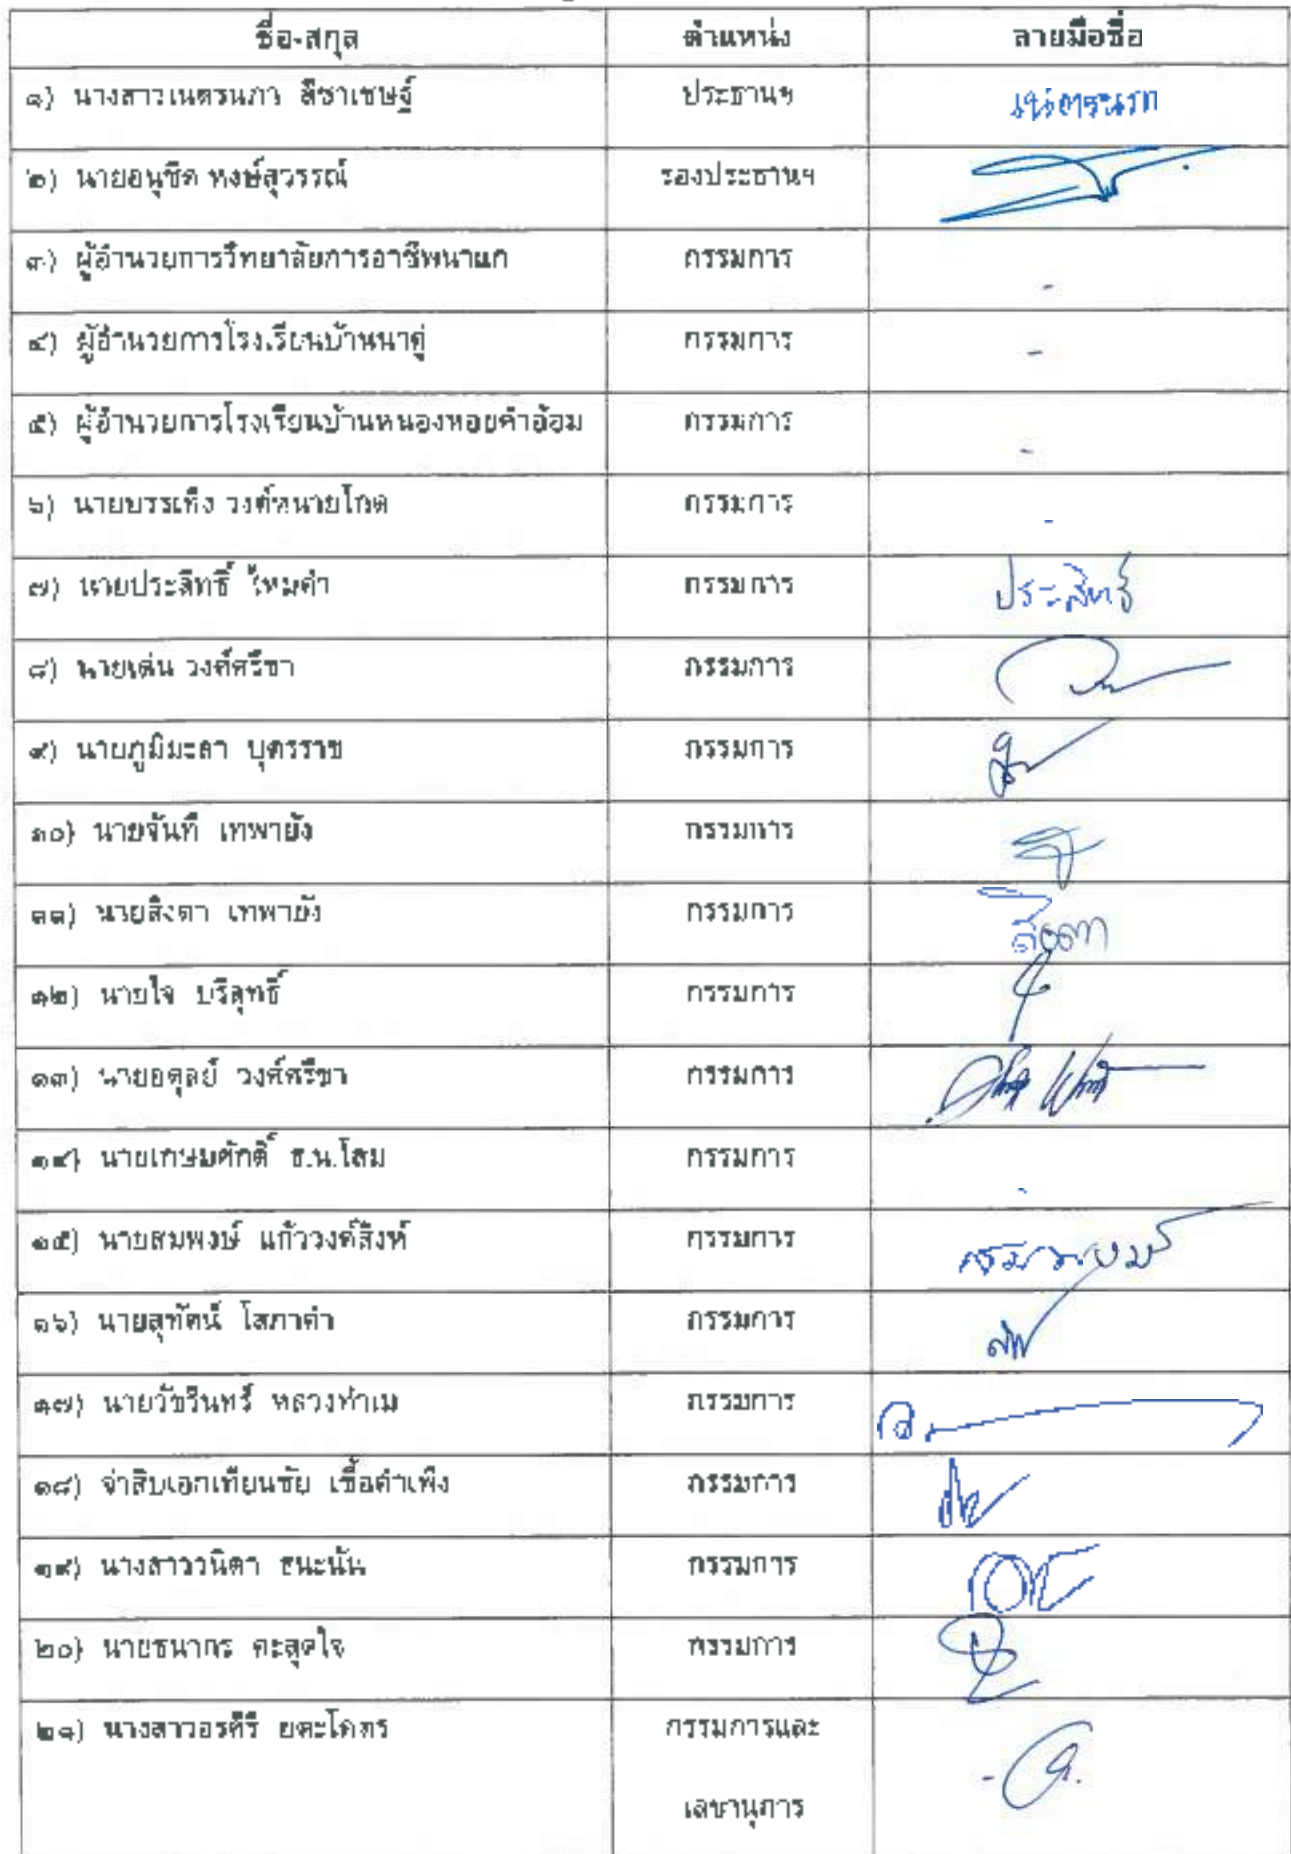 ชื่อ-สกุล ตำแหน่ง ลายมือชื่อ
๑) นางสาวเนตรนภา ลีชาเชษฐ์ ประธานฯ เนตรนภา
๒) นายอนุชิต หงษ์สุวรรณ์ รองประธานฯ
๓) ผู้อำนวยการวิทยาลัยการอาชีพนาแก กรรมการ -
๔) ผู้อำนวยการโรงเรียนบ้านนาคู่ กรรมการ -
๕) ผู้อำนวยการโรงเรียนบ้านหนองหอยคำอ้อม กรรมการ -
๖) นายบรรเทิง วงค์หนายโกด กรรมการ -
๗) นายประสิทธิ์ ไหมคำ กรรมการ ประสิทธิ์
๘) นายเด่น วงค์ศรีชา กรรมการ
๙) นายภูมิมะลา บุตรราช กรรมการ
๑๐) นายจันที เทพายัง กรรมการ
๑๑) นายสิงดา เทพายัง กรรมการ สิงดา
๑๒) นายใจ บริสุทธิ์ กรรมการ
๑๓) นายอดุลย์ วงค์ศรีชา กรรมการ
๑๔) นายเกษมศักดิ์ ธ.น.โสม กรรมการ -
๑๕) นายสมพงษ์ แก้ววงค์สิงห์ กรรมการ
๑๖) นายสุทัศน์ โสภาคำ กรรมการ
๑๗) นายวัชรินทร์ หลวงทำเม กรรมการ
๑๘) จ่าสิบเอกเทียนชัย เชื้อคำเพ็ง กรรมการ
๑๙) นางสาววนิดา ธนะนัน กรรมการ
๒๐) นายธนากร คะสุดใจ กรรมการ
๒๑) นางสาวอรศิริ ยตะโคตร กรรมการและ
เลขานุการ